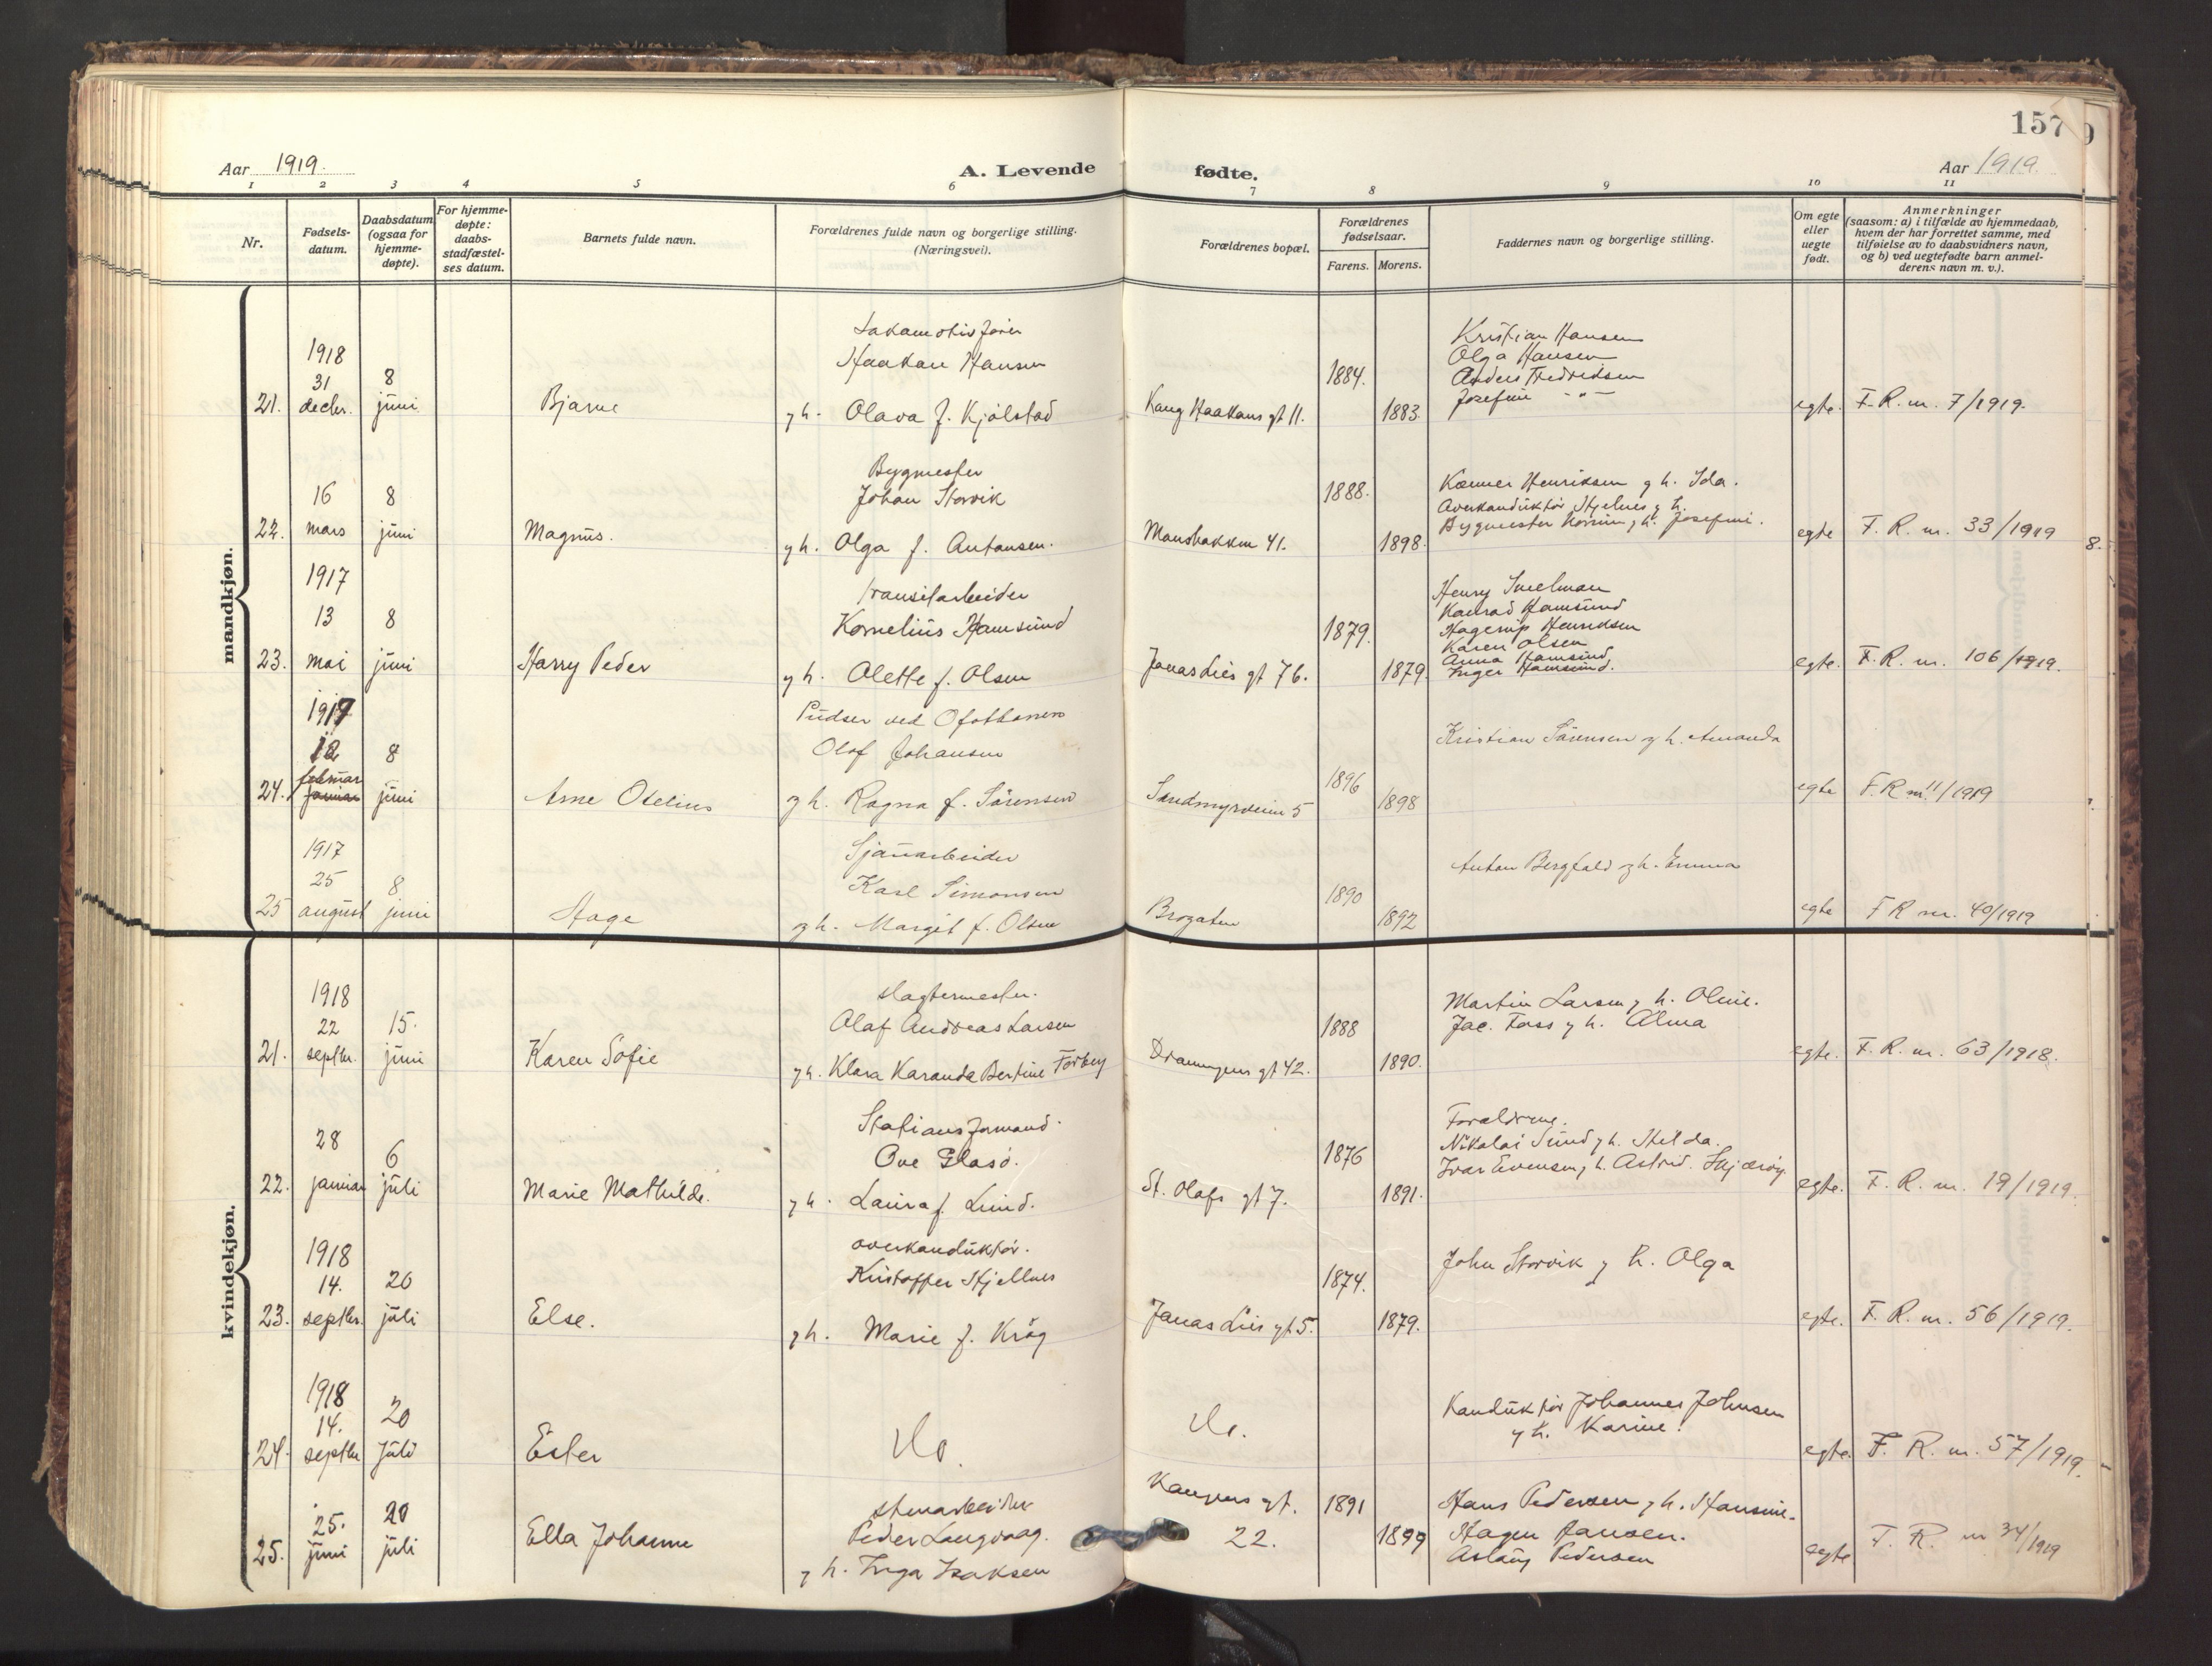 157
Aar 1919. A. Levende fødte. Aar 1919.
1 2 3 4 5 6 7 8 9 10 11
Nr.
Fødsels-
datum.
Daabsdatum
(ogsaa for
hjemme-
døpte).
For hjemme-
døpte:
daabs-
stadfæstel-
ses datum.
Barnets fulde navn.
Forældrenes fulde navn og borgerlige stilling.
(Næringsvei).
Forældrenes bopæl.
Forældrenes
fødselsaar.
Farens. Morens.
Faddernes navn og borgerlige stilling.
Om egte
eller
uegte
født.
Anmerkninger
(saasom: a) i tilfælde av hjemmedaab,
hvem der har forrettet samme, med
tilføielse av to daabsvidners navn,
og b) ved uegtefødte barn anmel-
derens navn m. v.).
mandkjøn.
21.
1918
31
decbr.
8
juni
Bjarne
Lokomotivfører
Haakon Hansen
g h. Olava f. Kjølstad
Kong Haakons gt 11.
1884.
1883.
Kristian Hansen
Olga Hansen
Anders Fredriksen
Josefine - " -
egte.
F. R. nr. 7/1919.
22.
16
mars
8
juni
Magnus.
Bygmester
Johan Storvik
g h. Olga f. Antonsen.
41.
1888.
1898.
Henriksen g h. Ida.
Overkonduktør Hjelnes g h.
Bygmester g h. Josefine.
egte
F. R. nr. 33/1919
23.
1917
13
mai
8
juni
Harry Peder
Transitarbeider
Kornelius Hamsund
g h. Olette f. Olsen
Jonas Lies gt 76.
1879.
1879
Henry
Konrad Hamsund
Hagerup Henriksen
Karen Olsen
Anna Hamsund
Inger Hamsund.
egte.
F. R. nr. 106/1919.
24.
1917
12
februar
januar
8
juni
Arne Otelius
Pudser ved Ofotbanen
Olof Johansen
g h. Ragna f. Sørensen
Sandmyrveien 5
1896
1898
Kristian Sørensen g h. Amanda
egte
F. R nr. 11/1919
25
1917
25
august
8
juni
Hage
Sjauarbeider
Karl Simonsen
g h. Margit f. Olsen
Brogaten
1890
1892
Anton Bergfald g h. Emma
egte
F R nr. 40/1919
kvindekjøn.
21.
1918
22
septbr.
15.
juni
Karen Sofie
slagtermester.
Olaf Andreas Larsen
g h. Klara Karanda Bertine Forberg
Dronningens gt 42.
1888
1890.
Martin Larsen g h. Oline.
Jac. Foss g h. Alma
egte.
F. R. nr. 63/1918.
22.
28
januar
6
juli
Marie Mathilde.
Stationsformand.
Ove Glasø.
g h. Laura f. Lund.
St. Olafs gt 7.
1876
1891.
Forældrene.
Nikolai Lund g h. Hilda.
Ivar Evensen g h. Astrid.
egte.
F. R. nr. 19/1919.
23.
1918
14.
septbr.
20
juli
Else.
overkonduktør.
Kristoffer Hjellnes
g h. Marie f. Krog
Jonas Lies gt 5.
1874.
1879.
John Storvik g h. Olga
egte.
F. R. nr. 56/1919.
24.
1918
14.
septbr
20
juli
Ester
Do.
Do.
Konduktør Johannes Johnsen
g h. Karine.
egte.
F. R. nr. 57/1919.
25.
25.
juni
20
juli
Ella Johanne
stenarbeider
Peder Langvaag.
g h. Inga Isaksen
Kongens gt.
22.
1891
1899
Hans Pedersen g h. Hansine.
Hagen Hansen.
Aslaug Pedersen
egte
F. R. nr 34/1919